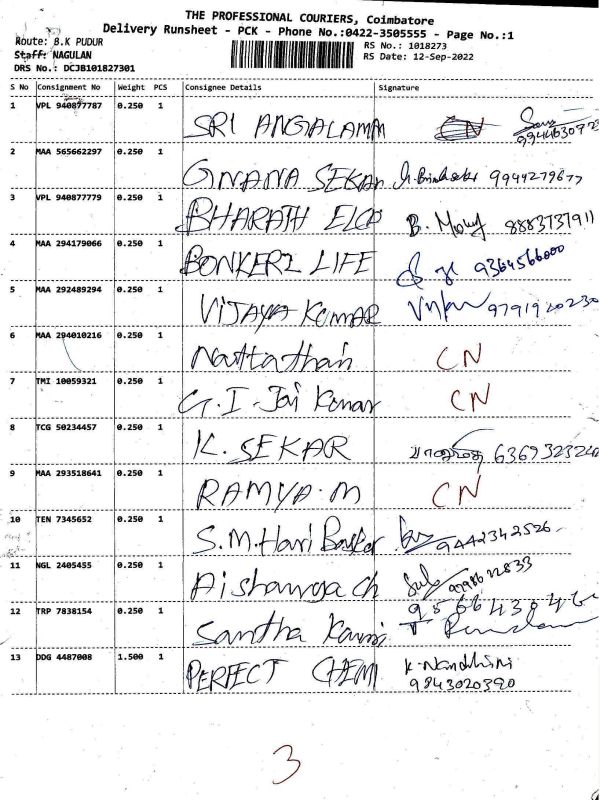 THE PROFESSIONAL COURIERS, Coimbatore
Delivery Runsheet - PCK - Phone No.:0422-3505555 - Page No.:1
Route: B.K PUDUR
RS No.: 1018273
Staff: NAGULAN
RS Date: 12-Sep-2022
DRS No.: DCJB101827301
S No Consignment No Weight PCS Consignee Details Signature
1 VPL 940877787 0.250 1 SRI ANGALAMM CN
2 MAA 565662297 0.250 1 GNANA SEKAR
3 VPL 940877779 0.250 1 BHARATH ELCO B. Mony 8883737911
4 MAA 294179066 0.250 1 BONKERZ LIFE 9364566000
5 MAA 292489294 0.250 1 VIJAYA KUMAR 9791920230
6 MAA 294010216 0.250 1 Nattathan CN
7 TMI 10059321 0.250 1 G.I. Jai Kumar CN
8 TCG 50234457 0.250 1 K. SEKAR 636932324
9 MAA 293518641 0.250 1 RAMYA.M CN
10 TEN 7345652 0.250 1 S.M.Hari Basker 9442342526
11 NGL 2405455 0.250 1 Aishwarya ch
12 TRP 7838154 0.250 1 Santha Kumi
13 DDG 4487008 1.500 1 PERFECT CHEMI K. Nandhini
9843020390
3